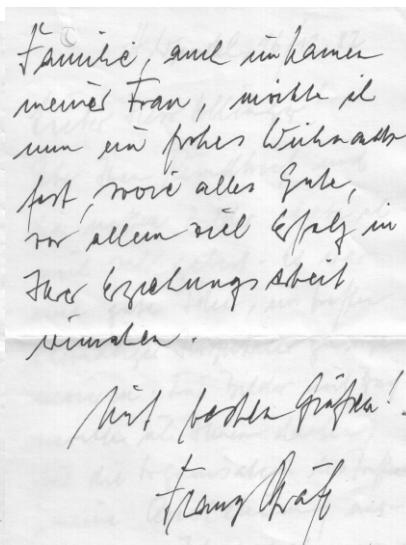 Familie, auch im Namen
meiner Frau, möchte ich
nun ein frohes Weihnachts
fest, sowie alles Gute,
vor allem viel Erfolg in
Ihrer Erziehungsarbeit
wünschen.
Mit besten Grüßen!
Franz